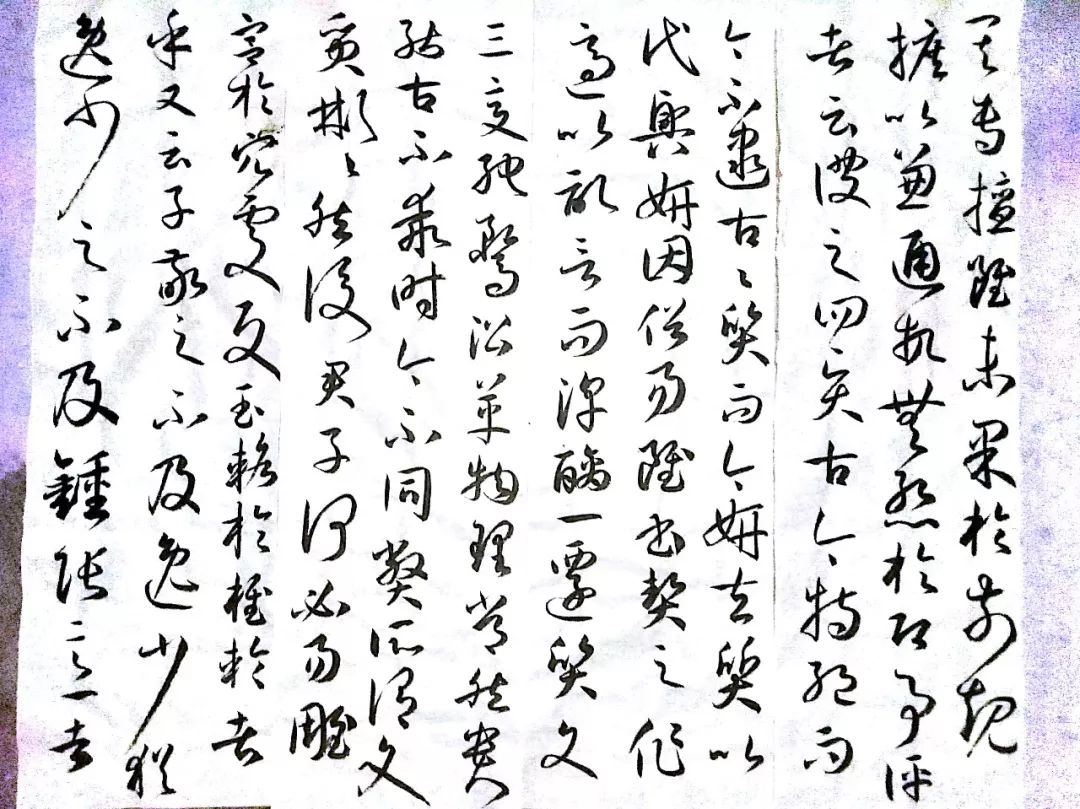 其專擅雖未果於前規
摭以兼通故無慙於即事評
者云彼之四賢古今特絕而
今不逮古〻質而今妍夫質以
代興妍因俗易雖書契之作
適以記言而淳醨一遷質文
三變馳騖沿革物理常然貴
能古不乖時今不同弊所謂文
質彬〻然後君子何必易雕
宮於穴處反玉輅於椎輪者
乎又云子敬之不及逸少猶
逸少之不及鍾張意者